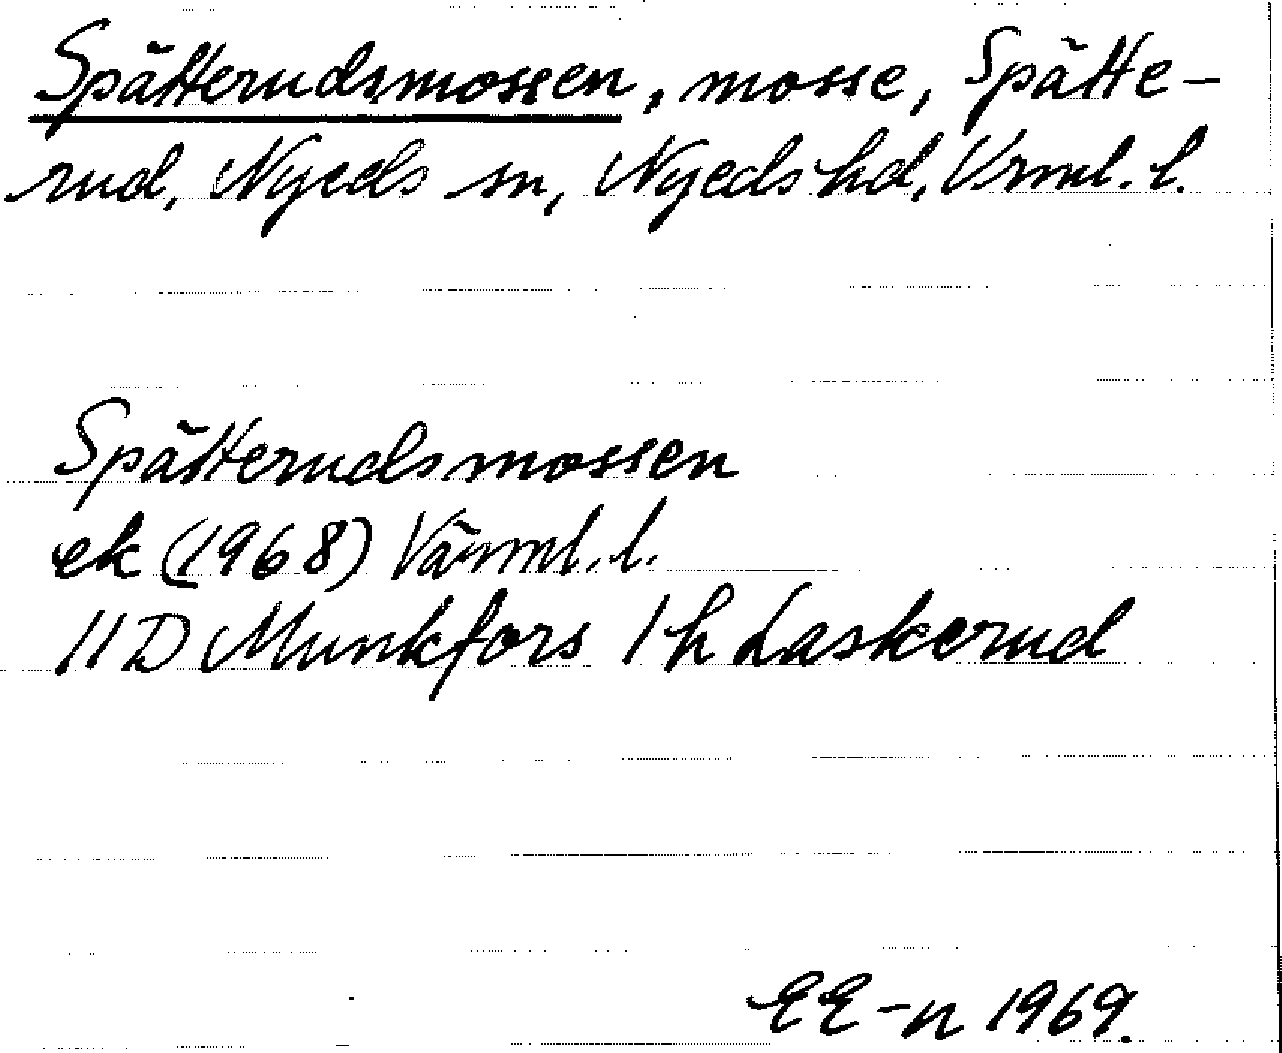 Spätterudsmossen, mosse, Spätte-
rud, Nyeds sn, Nyeds hd, Vrml. l.
Spätterudsmossen
ek (1968) Värml. l.
11D Munkfors 1h Laskerud
EE-n 1969.